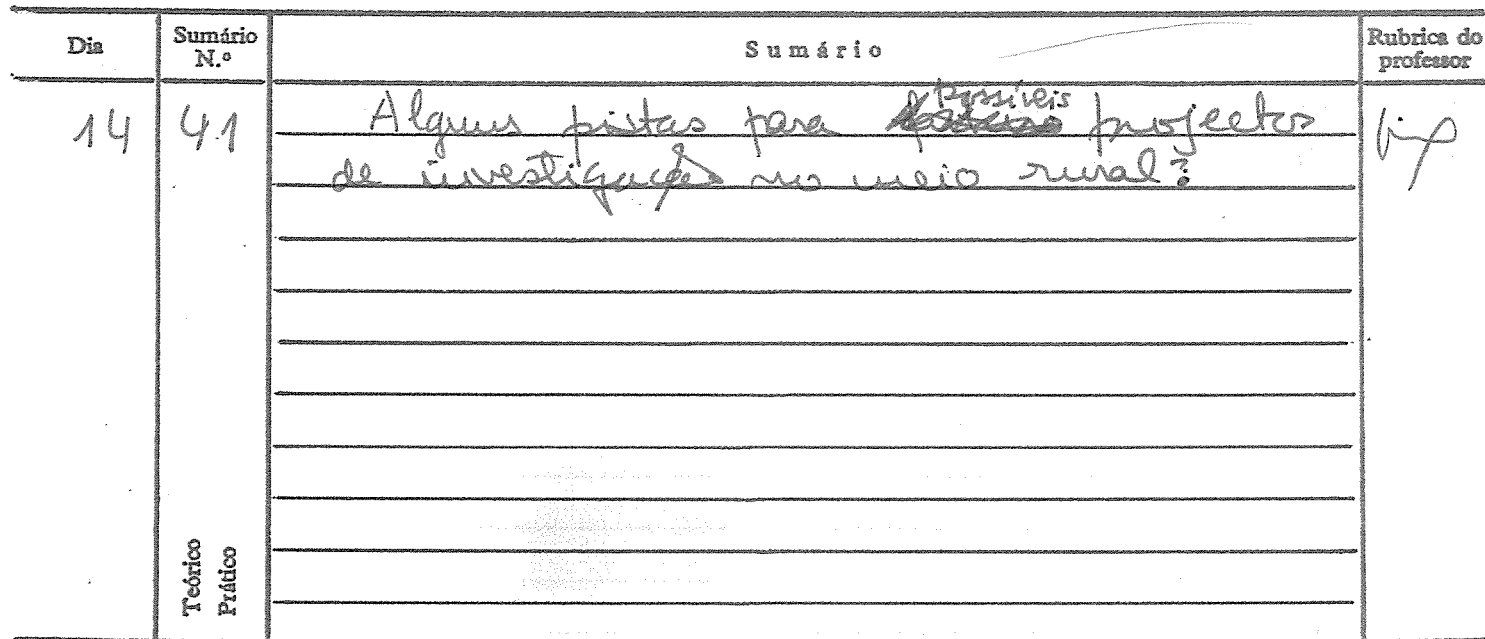 Dia Sumário N.º Sumário Rubrica do professor
14 41 Algumas pistas para possíveis projectos
de investigação no meio rural?
Teórico
Prático